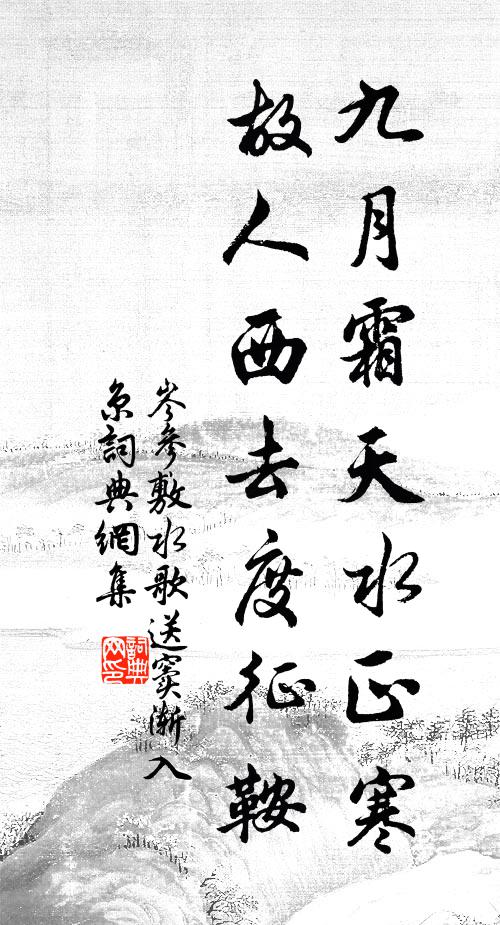 九月霜天水正寒
故人西去度征鞍
岑參敷水歌送竇漸入
京詞典網集
詞典
网印